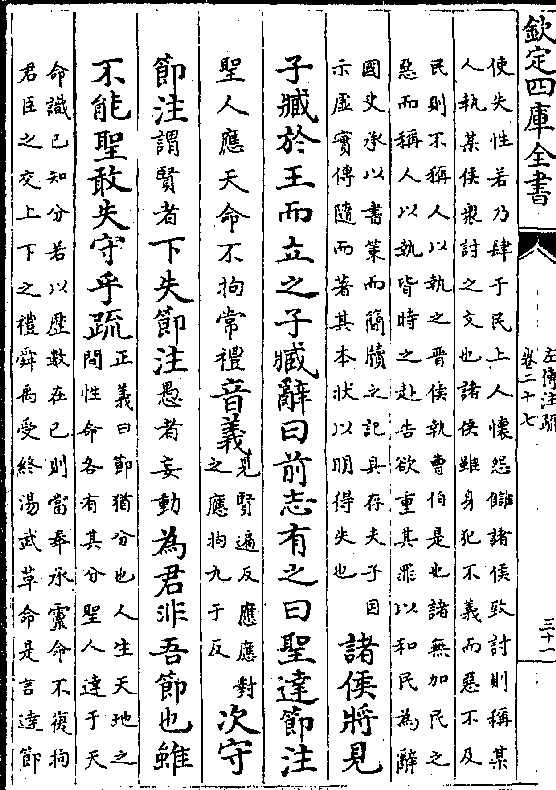 欽定四庫全書
左傳注疏
卷二十七
三十一
使失性若乃肆于民上人懷怨讎諸侯致討則稱某
人執某侯衆討之文也諸侯雖身犯不義而惡不及
民則不稱人以執之晉侯執曹伯是也諸無加民之
惡而稱人以執皆時之赴告欲重其罪以和民為辭
國史承以書策而簡牘之記具存夫子因
示虛實傳隨而著其本狀以明得失也
諸侯將見
子臧於王而立之子臧辭曰前志有之曰聖達節注
聖人應天命不拘常禮
音義
見賢遍反應應對
之應拘九于反
次守
節注
謂賢者
下失節注
愚者妄動
為君非吾節也雖
不能聖敢失守乎疏
正義曰節猶分也人生天地之
間性命各有其分聖人達于天
命識己知分若以歷數在己則當奉承靈命不復拘
君臣之交上下之禮舜禹受終湯武革命是言達節